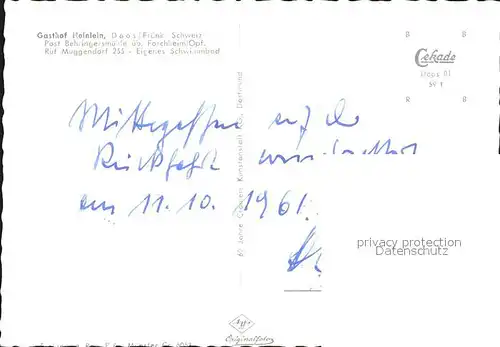 Gasthof Heinlein, Doos/Fränk. Schweiz
Post Behringersmühle üb. Forchheim/Opf.
Ruf Muggendorf 255 - Eigenes Schwimmbad
Cekade
Doos 81
Mittagessen auf der
Rückfahrt
am 11.10. 1961.
60 Jahre Cramers Kunstanstalt KG., Dortmund
privacy protection
Datenschutz
Agfa
Originalfoto